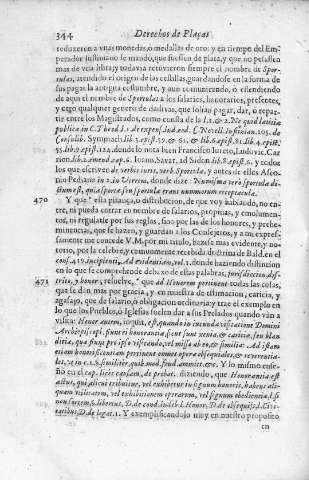 344 Derechos de Plaças
reduxeron a vnas monedas, o medallas de oro: y en tiempo del Em-
perador Iustiniano se mandò, que fuessen de plata, y que no pesassen
mas de vna libra; y todavia retuvieron siempre el nombre de Spor-
tulas, atendido el origen de las cestillas, guardandose en la forma de
sus pagas la antigua costumbre, y aun comunicando, o estendiendo
de aqui el nombre de Sportulas a los salarios, honorarios, presentes,
y otro qualquier genero de dadivas, que se solian pagar, dar, o repar-
tir entre los Magistrados, como consta de la l.1. & 2. Ne quid lætitiæ
publicæ in C. Theod. l.1. de expens. lud. eod. C. Novell. Iustinian. 105. de
Consulib. Symmach. lib. 2. epist. 81. & lib. 9. epist.
donde lo nota bien Francisco Iureto, Ludovic. Car
rion. lib. 2. emend. cap. 6. Ioann. Savar. ad Sidon. lib. 8. epist. 6. y todos
los que escriven de verbis iuris, verb. Sportula, y antes de ellos Asco-
nio Pediano in 2. in Verrem, donde dize: Nummus vero sportula di-
470 Y que esta pitança, o distribucion, de que voy hablando, no en-
tre, ni pueda entrar en nombre de salarios, propinas, y emolumen-
tos, ni regularse por sus reglas, sino por las de los honores, y prehe-
minencias, que se hazen, y guardan a los Consejeros, y a mi expres-
samente me concede V.M. por mi titulo, hazese mas evidente, y no-
torio, por la celebre, y comunmente recebida doctrina de Bald. en el
cons. 419. incipient. Ad evidentiam, vol. 1. donde haziendo distincion
en lo que se comprehende debaxo de estas palabras, jurisdiccion, dis-
471 trito, y honor, resuelve, que ad Honorem pertinent todas las cosas,
que se dan mas por gracia, y en muestra de estimacion, caricia, y
agasajo, que de salario, ò obligacion ordinaria: y trae el exemplo en
lo que los Pueblos, ò Iglesias suelen dar a sus Prelados quando vàn a
visita: Honor autem, inquit, est, quando in iucunda visitatione Domini
Archiepiscopi, fiunt ei honorantia, sicut sunt xenia, & caricia, seu blan
ditia, quæ fiunt pro ipso visitando, vel missa ab eo, & similia: Ad istam
etiam honorificentiam pertinent omnes opera obsequiales, & reverentia-
les,
ò en el cap. licet causam, de probat. diziendo, que Honorantia est
actus, qui alicui tribuitur, vel exhibetur in signum honoris, habens ali-
quam vilitatem, vel exhibitionem operarum, vel signum obedientiæ, l. si
non sortem, §. libertus, D. de cond. indeb. l. Honor, D. de obsequijs, l. Civi-
tatibus, D. de legat. 1. Y exemplificandolo muy en nuestro proposito
en